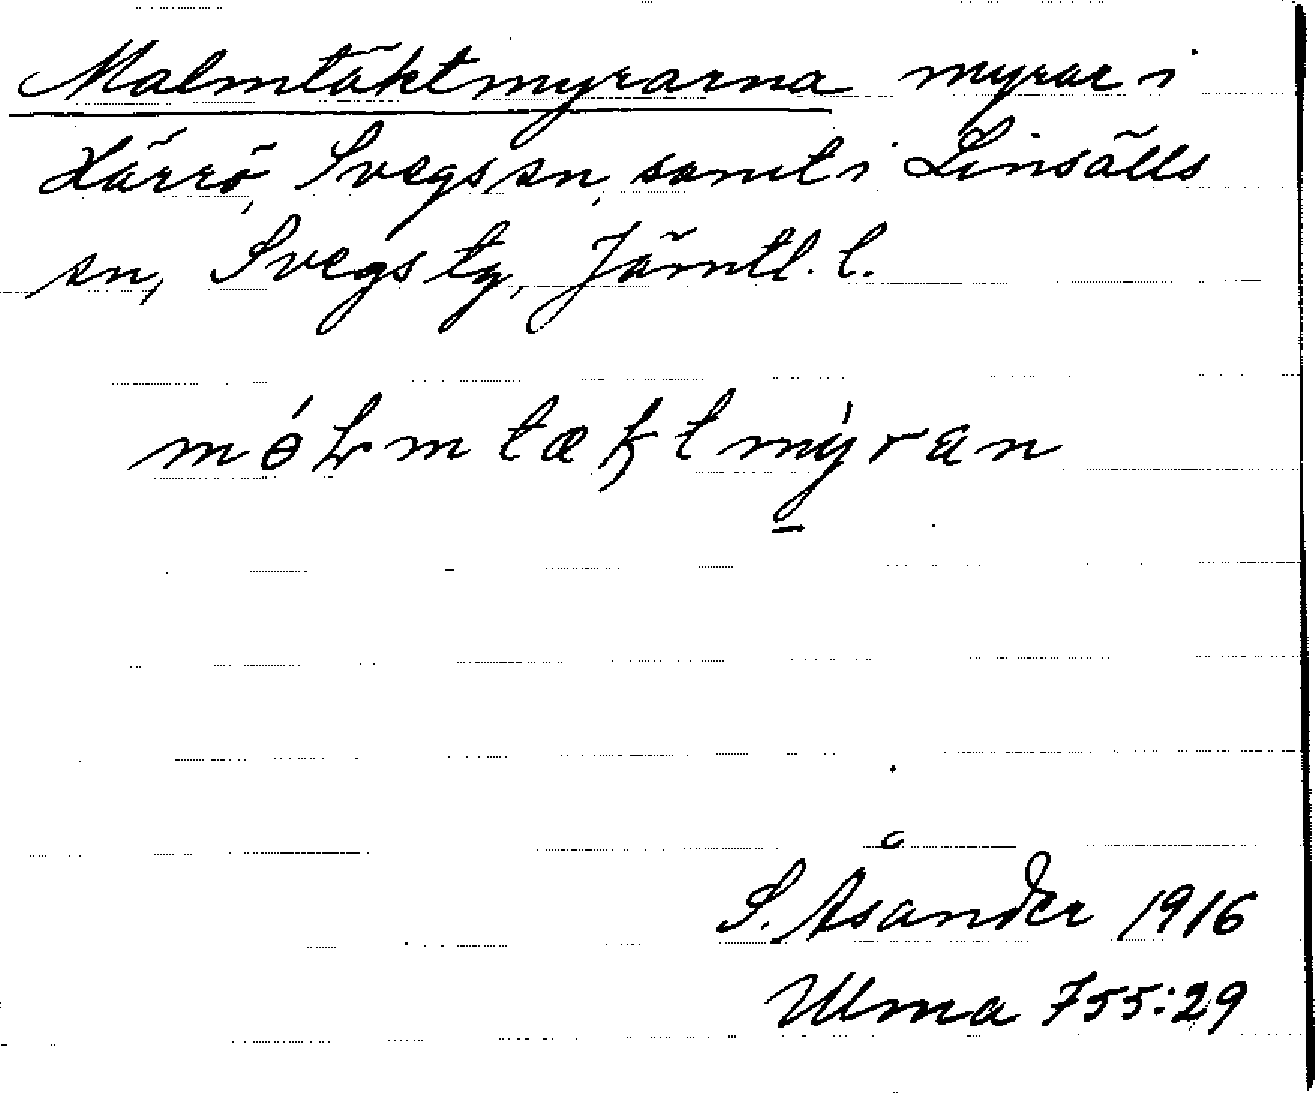 Malmtäktmyrarna myrar i
Härrö, Svegs sn, samt i Linsälls
sn, Svegs tg, Jämtl. l.
móƚmtæktmýran
S. Åsander 1916
Ulma 755:29